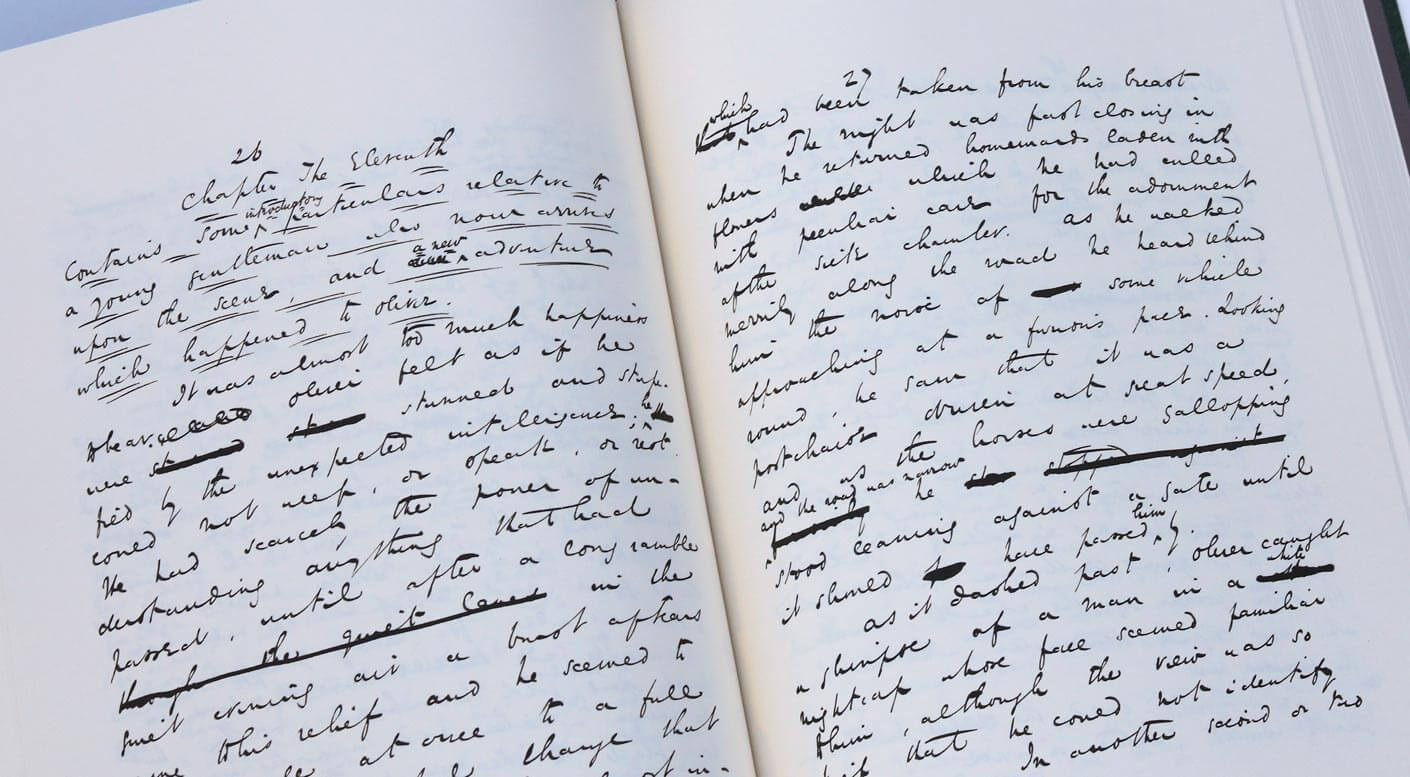 26
Chapter The Eleventh
Contains some introductory particulars relative to
a young gentleman who now arrives
upon the scene, and a new adventure
which happened to Oliver.
It was almost too much happiness
to bear. Oliver felt as if he
were stunned and stupe-
fied by the unexpected intelligence; he
could not weep, or speak, or rest.
He had scarcely the power of un-
derstanding anything that had
passed, until after a long ramble
though the quiet lanes in the
quiet evening air a burst of tears
this relief and he seemed to
at once to a full
change that
in-
27
which had been taken from his breast
The night was fast closing in
when he returned homewards laden with
flowers which he had culled
with peculiar care for the adornment
of the sick chamber. as he walked
merrily along the road he heard behind
him the noise of some vehicle
approaching at a furious pace. Looking
round, he saw that it was a
postchaise driven at great speed,
and as the horses were gallopping
and the road was narrow he
stood leaning against a gate until
it should have passed him.
as it dashed past, Oliver caught
a glimpse of a man in a white
nightcap whose face seemed familiar
to him, although the view was so
that he could not identify
In another second or two